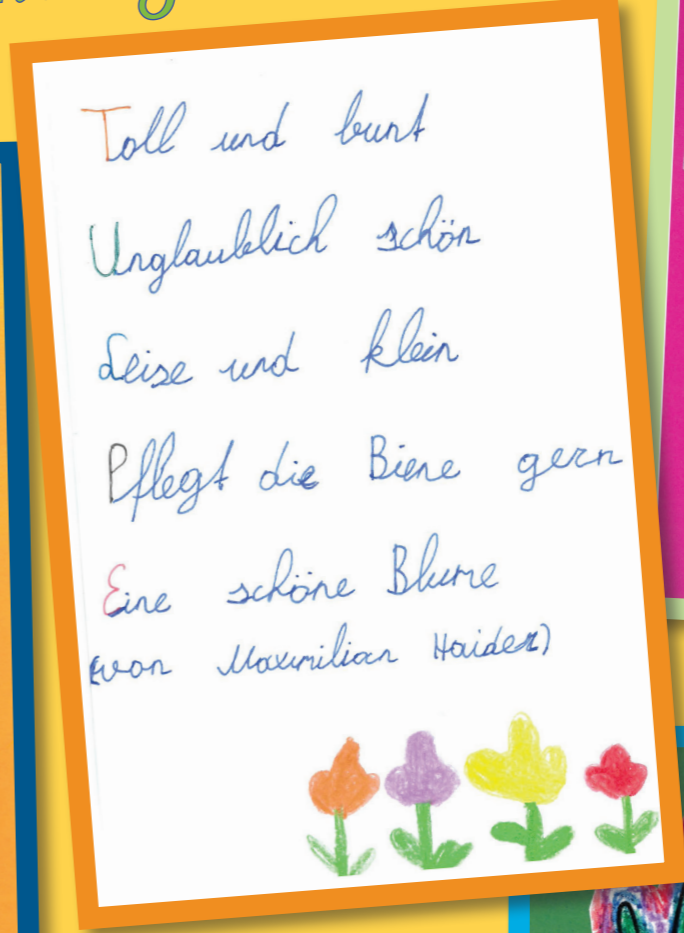 Toll und bunt
Unglaublich schön
Leise und klein
Pflegt die Biene gern
Eine schöne Blume
(von Maximilian Haider)